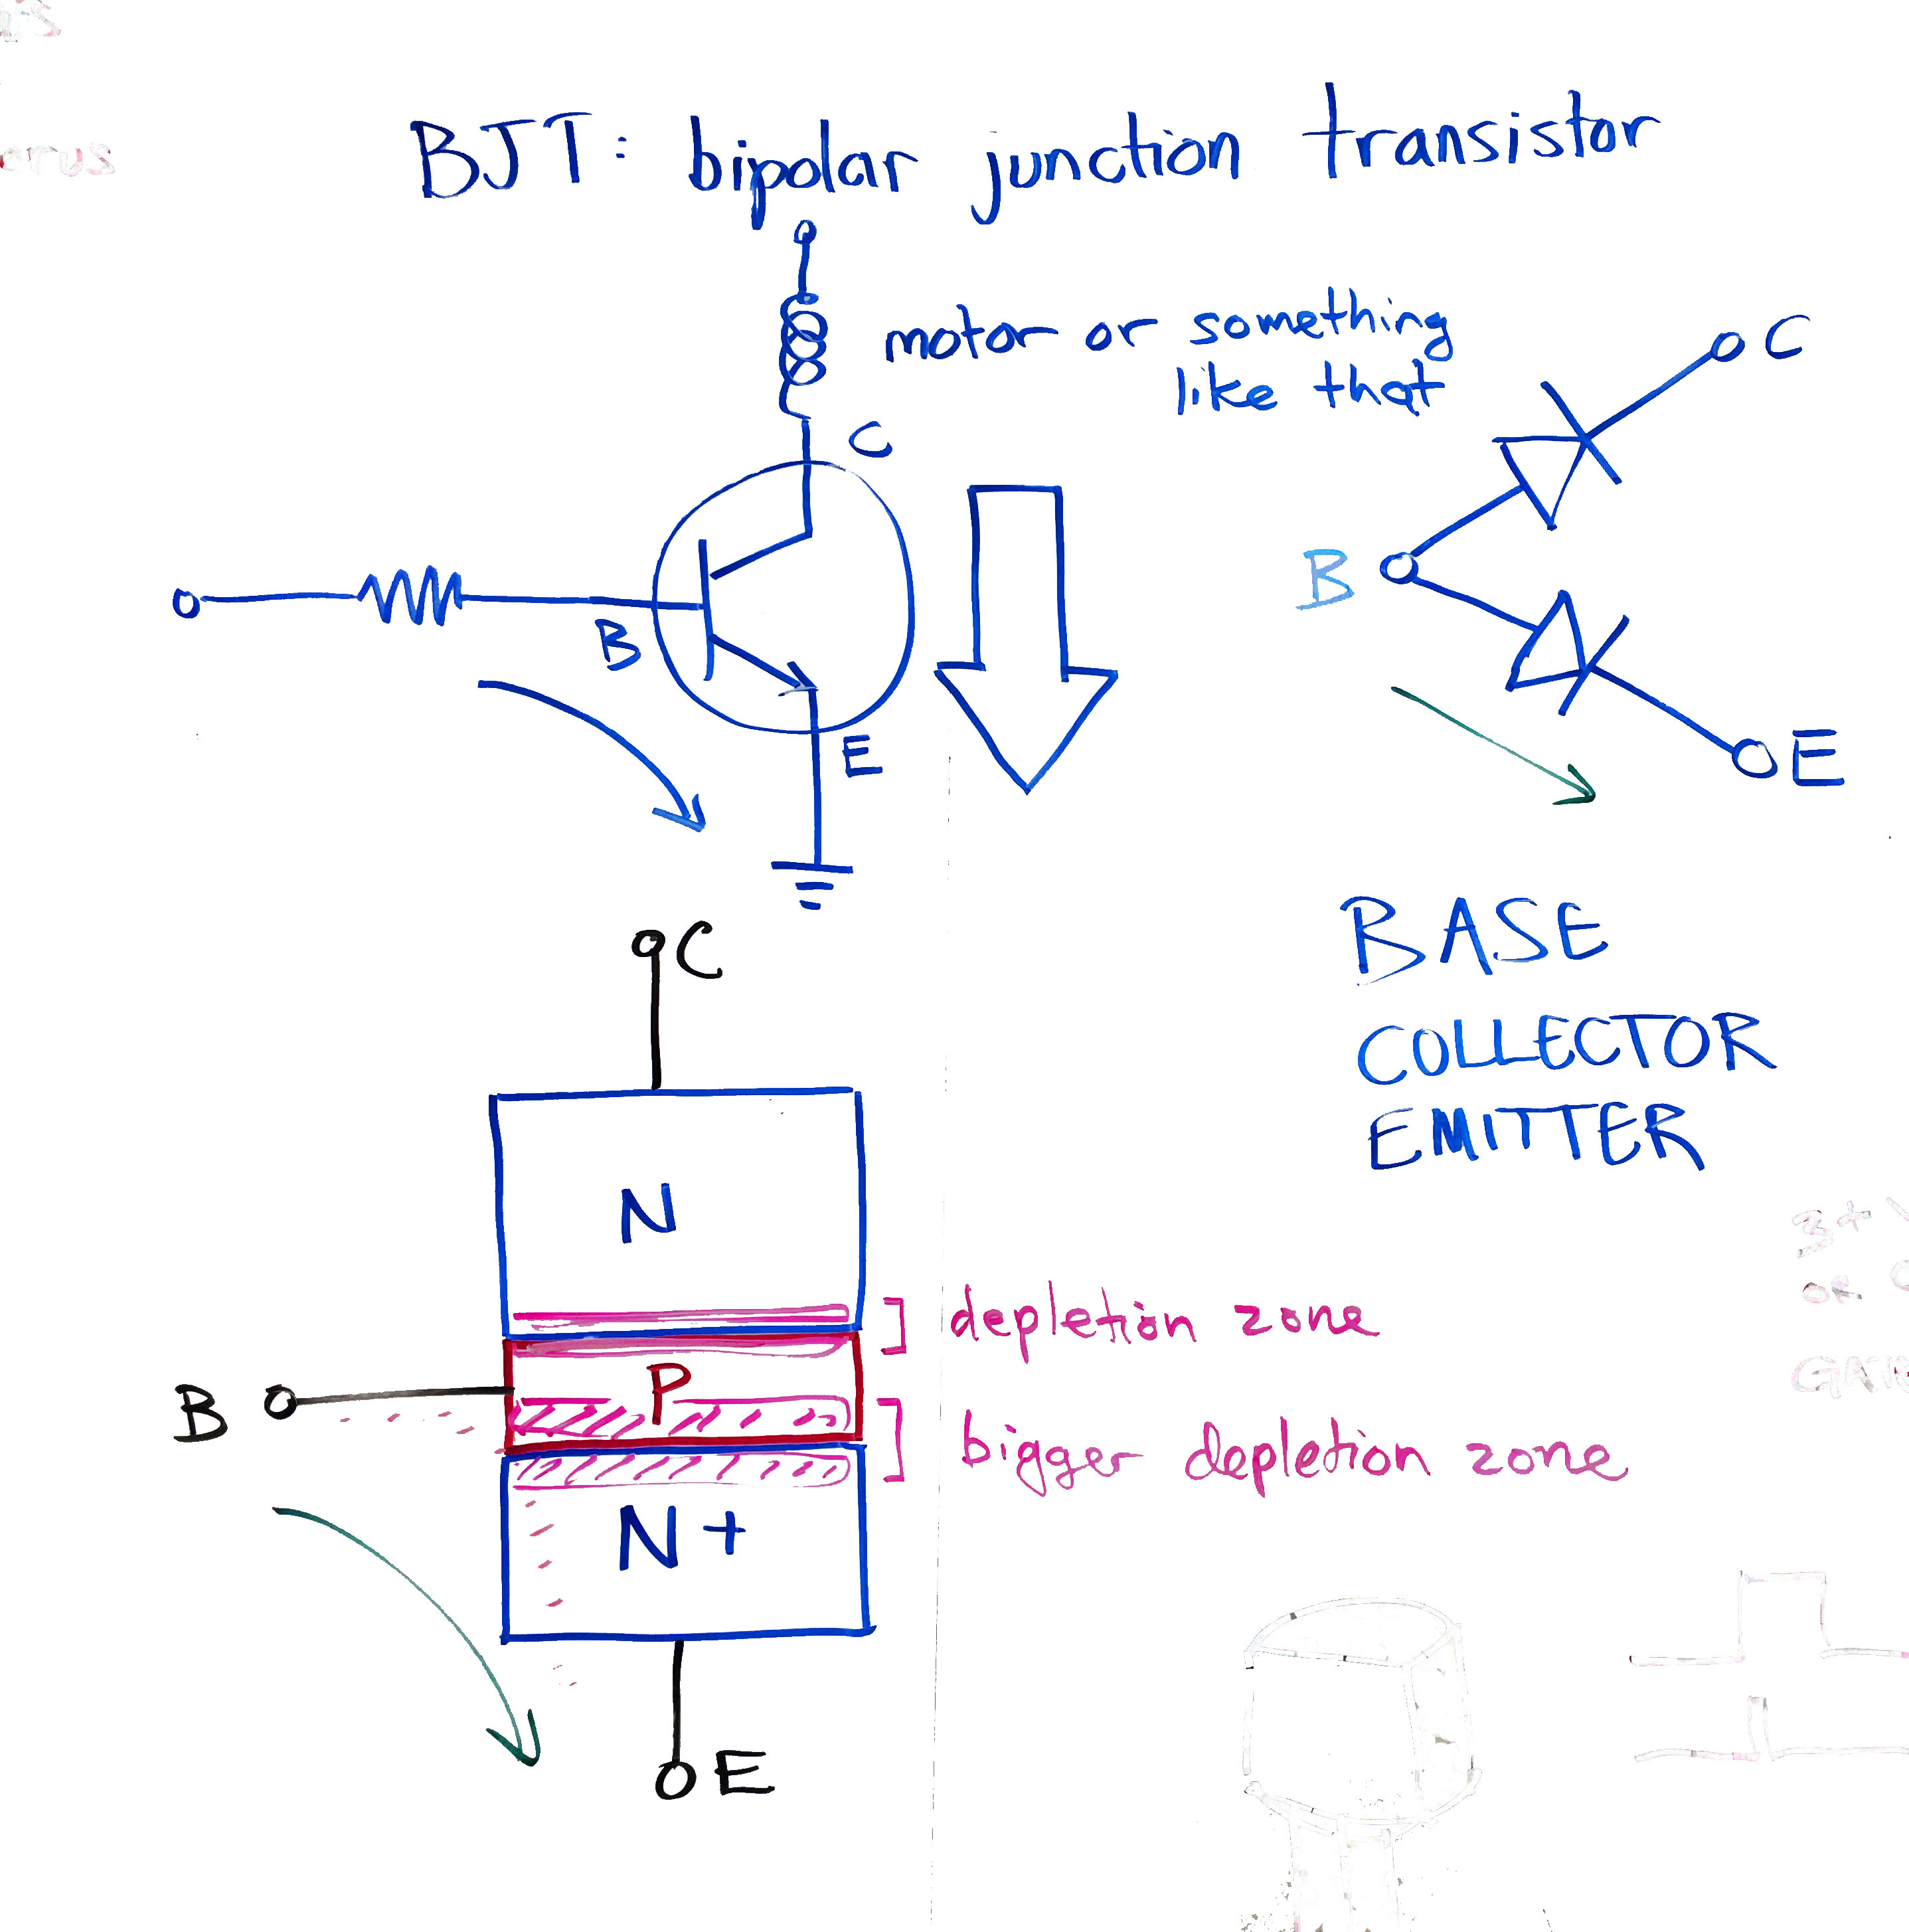 BJT: bipolar junction transistor
motor or something
like that
C
B
E
C
B
E
BASE
COLLECTOR
EMITTER
C
N
depletion zone
P
B
bigger depletion zone
N+
E